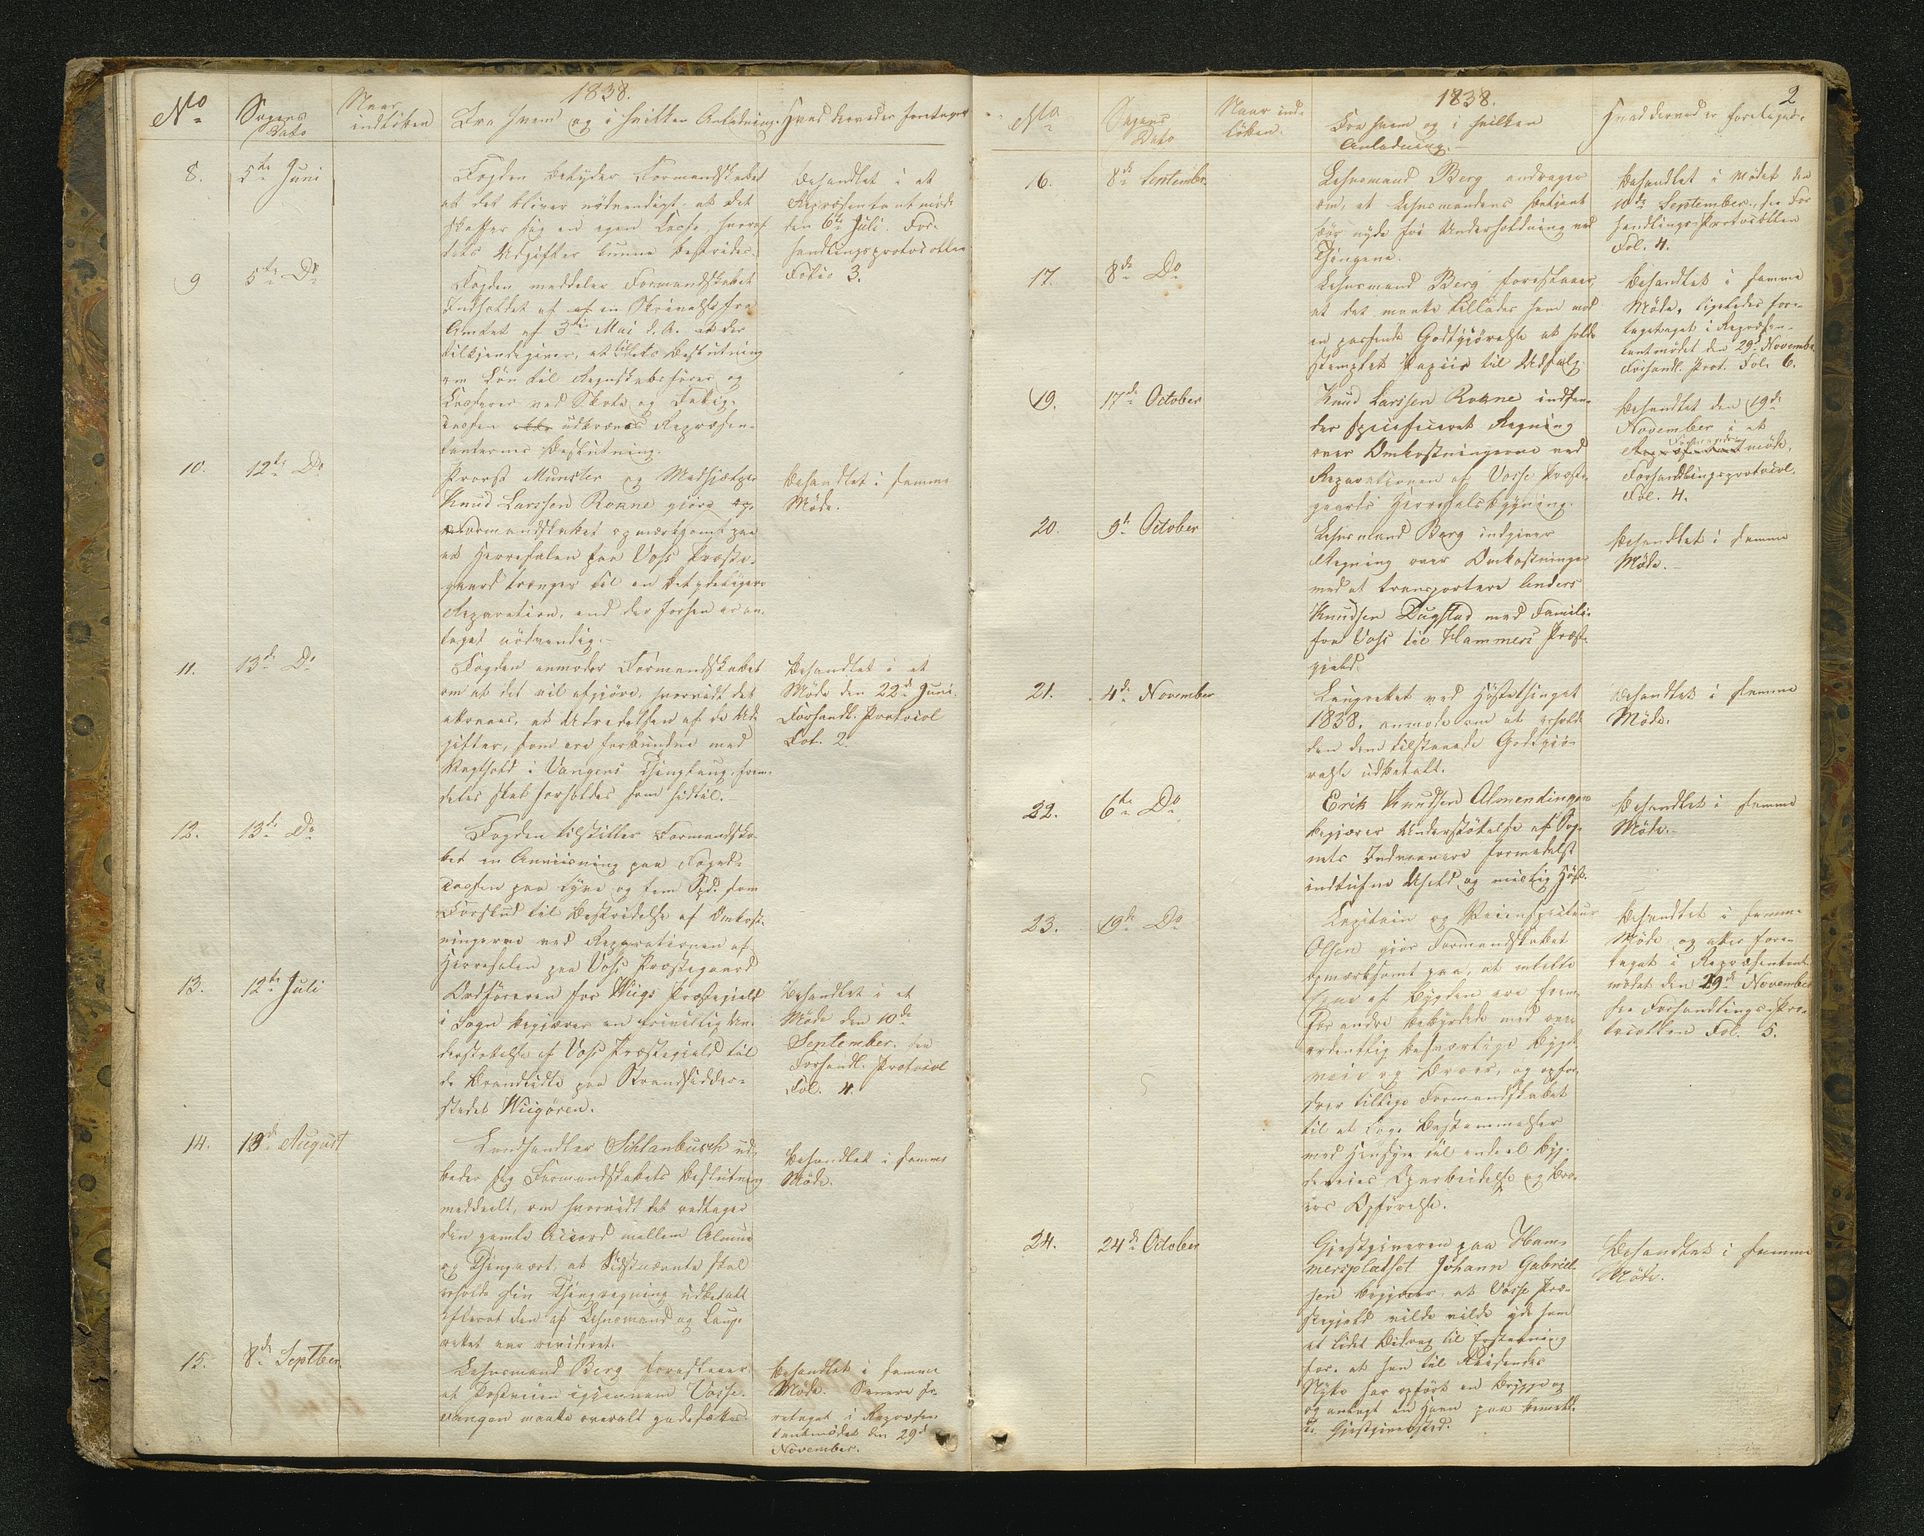 1838.
No
Sagens
Dato
Naar
indkommen
Fra hvem og i hvilken Anledning.
Hvad derved er foretaget
8.
5te Juni
Fogden betyder Formandskabet
at det bliver nødvendigt, at det
skaffer sig en egen Casse hvoraf
dets Udgifter kunne bestrides.
Behandlet i et
Repræsentantmøde
den 6te Juli. For-
handlingsprotocollen
Folio 3.
9
5te Do
Fogden meddeler Formandskabet
Indholdet af en Skrivelse fra
Amtet af 3die Mai d. A. at der
tilkjendegiver, at dets Beslutning
om Løn til Regnskabsfører og
Casserer ved Skole og Fattig-
cassen udkræves Repræsen-
tanternes Beslutning.
10.
12te Do
Provst Münster og Medhjælper
Knud Larssen Rokne gjøre
Formandskabet opmærksomt paa
at Herresalen paa Voss Præste-
gaard trænger til en betydeligere
Reparation, end der forhen er an-
taget nødvendig.
Behandlet i samme
Møde.
11.
13de Do
Fogden anmoder Formandskabet
om at det vil afgjøre, hvorvidt det
ansees, at Udredelsen af de Ud-
gifter, som ere forbundne med
Vagthold i Vangens Thinglaug, frem-
deles skal forholdes som hidtil.
Behandlet i et
Møde den 22de Juni.
Forhandl. Protocol
Fol. 2.
12.
13de Do
Fogden tilstiller Formandska-
bet en Anviisning paa Foged-
cassen paa tyve og fem Spd. som
Forskud til Bestridelse af Omkost-
ningerne ved Reparationen af
Herresalen paa Voss Præstegaard
13.
12te Juli
Ordføreren for Wiigs Præstegield
i Sogn begjærer en frivillig Un-
derstøttelse af Voss Præstegield til
de Brandlidte paa Strandsidde-
stedet Wiigøren.
Behandlet i et
Møde den 10de
September. See
Forhandl. Protocol
Fol. 4.
14.
13de August
Landhandler Schlanbusch ud-
beder sig Formandskabets Beslutning
meddeelt, om hvorvidt det vedtager
den gamle Accord mellem Almue
og Thingvært, at Sidstnævnte skal
erholde sin Thingregning udbetalt
efterat den af Lehnsmand og Laug-
rettet var revideret.
Behandlet i samme
Møde.
15.
8de Septbr.
Lehnsmand Berg forestaaer
at Postveien igjennem Vosse-
vangen maatte overalt
Behandlet i samme
Møde. Senere fo-
retaget i Repræsen-
tantmødet den 29de
November.
2
1838.
No
Sagens
Dato
Naar ind-
kommen.
Fra hvem og i hvilken
Anledning.
Hvad derved er foretaget.
16.
8de September.
Lehnsmand Berg andrager
om, at Lehnsmandens Betjent
bør nyde fri Underholdning ved
Thingene.
Behandlet i Mødet den
10de September, see For-
handlings-Protocollen
Fol. 4.
17.
8de Do
Lehnsmand Berg forestaaer,
at det maatte tillades ham mod
en passende Godtgjørelse at holde
stemplet Papiir til Udsalg.
Behandlet i samme
Møde, ligeledes fore-
taget i Repræsen-
tantmødet den 29de November
Forhandl. Prot. Fol. 6.
19.
17de October
Knud Larssen Rokne indsen-
der specificeret Regning
over Omkostningerne ved
Reparationen af Vosse Præste-
gaards Herresalsbygning.
Behandlet den 19de
November i et
Formands
Repræsentantmøde.
Forhandlingsprotocol.
Fol. 4.
20.
9de October
Lehnsmand Berg indgiver
Regning over Omkostninger
med at transportere Anders
Knudsen Dugstad med Familie
fra Voss til Hammers Præste-
gjeld.
Behandlet i samme
Møde.
21.
4de November
Laugrettet ved Høstethinget
1838. anmode om at erholde
den dem tilstaaede Godtgjø-
relse udbetalt.
Behandlet i samme
Møde.
22.
6te Do
Erik Knudsen Almendingen
begjærer Understøttelse af Sog-
nets Indvaanere formedelst
indtrufne Uheld og
Behandlet i samme
Møde.
23.
19de Do
Capitain og Veiinspecteur
Olsen gjør Formandskabet
opmærksomt paa, at
af Bygden ere frem
for andre bebyrdede med over-
ordentlig besværlige Bygde-
veie og Broer, og opfor-
drer tillige Formandskabet
til at tage Bestemmelser
med Hensyn til endeel Byg-
deveies Oparbeidelse og Bro-
ers Opførelse.
Behandlet i samme
Møde og atter fore-
taget i Repræsentant-
mødet den 29de November
see Forhandlings-Pro-
tocollen Fol. 5.
24.
24de October
Gjestgiveren paa Ham-
mersplatset Johann Gabriel-
sen begjærer, at Vosse Præ-
stegjeld vilde yde ham
et lidet Bidrag til Erstatning
for, at han til Reisendes
Nytte har opført en Brygge og
og anlagt en Havn paa bemeldte
Gjestgiversted.
Behandlet i samme
Møde.